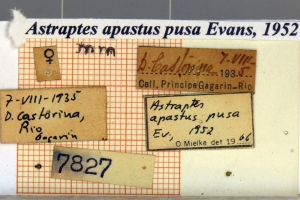 Astraptes apastus pusa Evans, 1952
♀
D. Castorina 7-VIII-
1935
Coll. Principe Gagarin-Rio
7-VIII-1935
D. Castorina,
Rio
Gagarin
Astraptes
apastus pusa
Ev., 1952
O Mielke det 19 66
7827